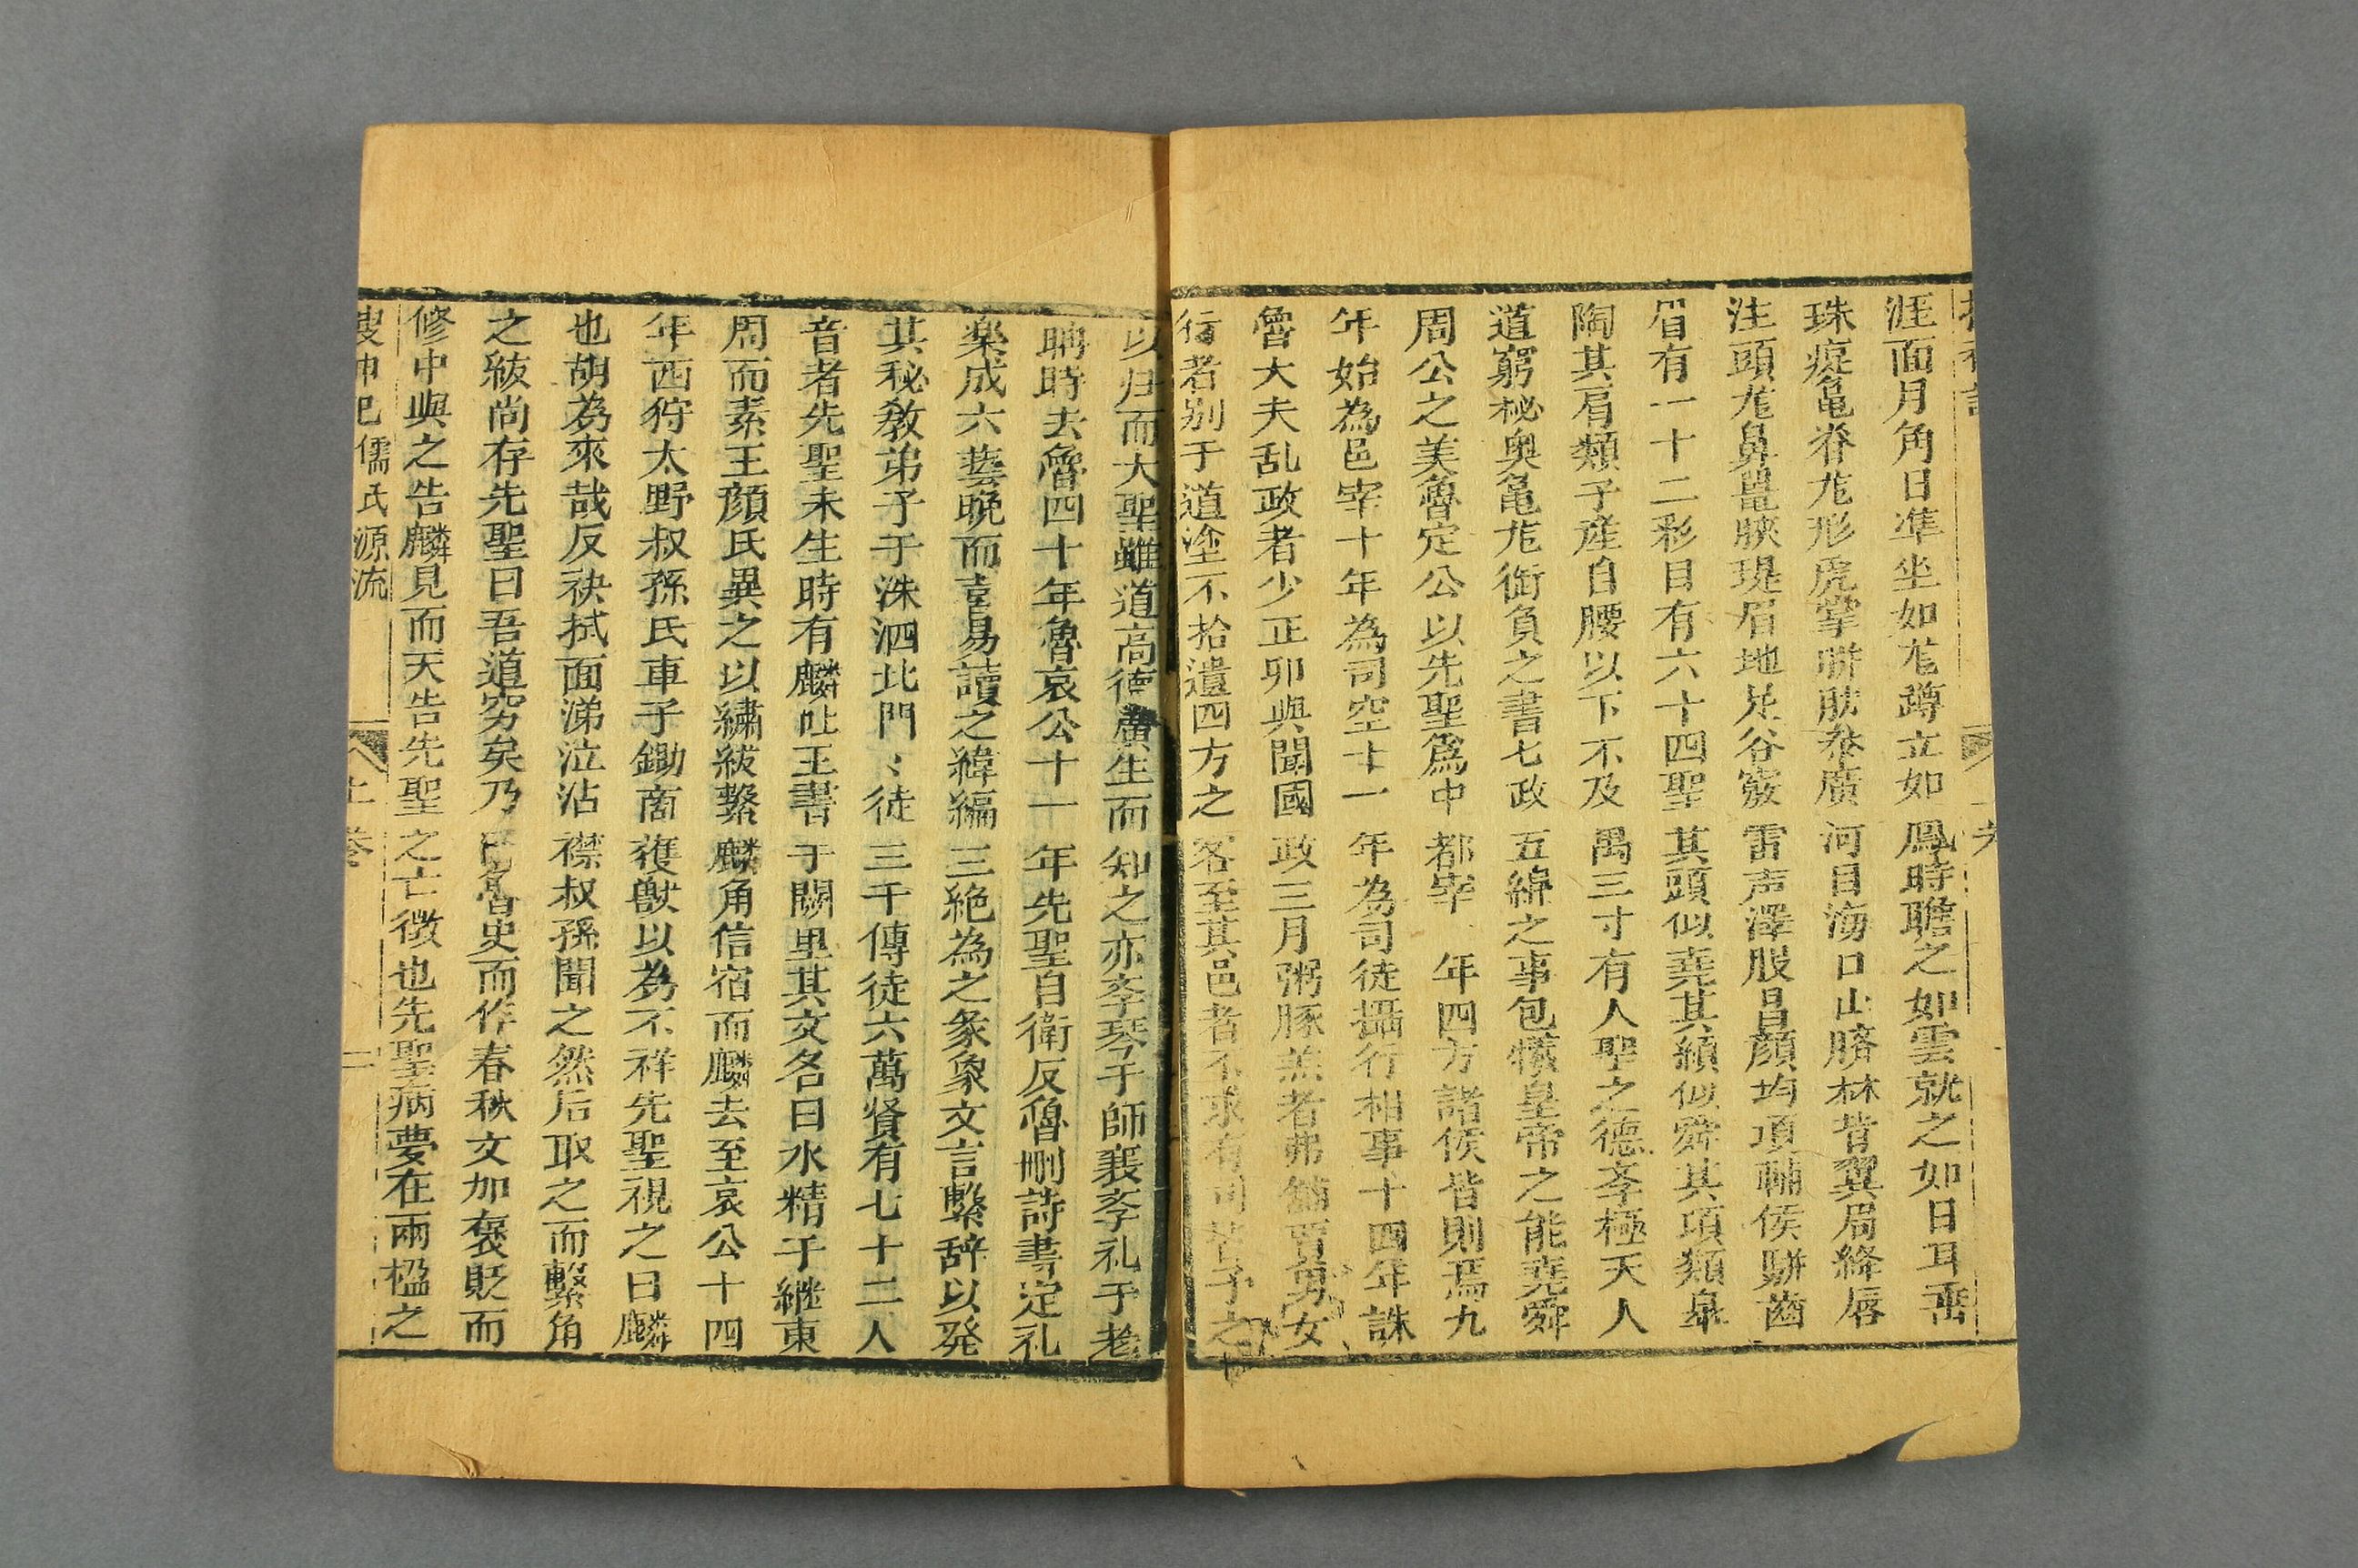 涯面月角日準坐如尨蹲立如鳳時瞻之如雲就之如日耳垂
珠庭龜脊尨形虎掌駢肱叅膺河目海口山臍林背翼肩絳唇
注頭尨鼻阜脥堤眉地足谷竅雷声澤腹昌顔均項輔侯駢齒
眉有一十二彩目有六十四聖其頭似堯其顙似舜其項類皋
陶其肩類子産自腰以下不及禹三寸有人聖之德孝極天人
道窮秘奥亀尨衘負之書七政五緯之事包犧皇帝之能堯舜
周公之美魯定公以先聖爲中都宰 年四方諸侯皆則焉九
年始為邑宰十年為司空十一年為司徒攝行相事十四年誅
魯大夫乱政者少正卯與聞國政三月粥豚羔者弗餙賈男女
行者别于道塗不拾遺四方之客至其邑者不求有司若予之
以归而大聖雖道高德廣生而知之亦斈琴于師襄斈礼于老
聃時去魯四十年魯哀公十一年先聖自衛反魯刪詩書定礼
楽成六藝晚而喜易讀之緯編三絶為之彖象文言繫辞以発
其秘教弟子于洙泗北門〻徒三千傳徒六萬贤有七十二人
音者先聖未生時有麟吐玉書于闕里其文名曰水精子継東
周而素王顔氏異之以繡紱繫麟角信宿而麟去至哀公十四
年西狩太野叔孫氏車子鋤商獲獸以為不祥先聖視之曰麟
也胡為來哉反袂拭面涕泣沾襟叔孫聞之然后取之而繫角
之紱尚存先聖曰吾道穷矣乃因魯史而作春秋文加褒貶而
修中與之告麟見而天告先聖之亡徵也先聖病夢在兩楹之
搜神記 儒氏源流 上卷 二